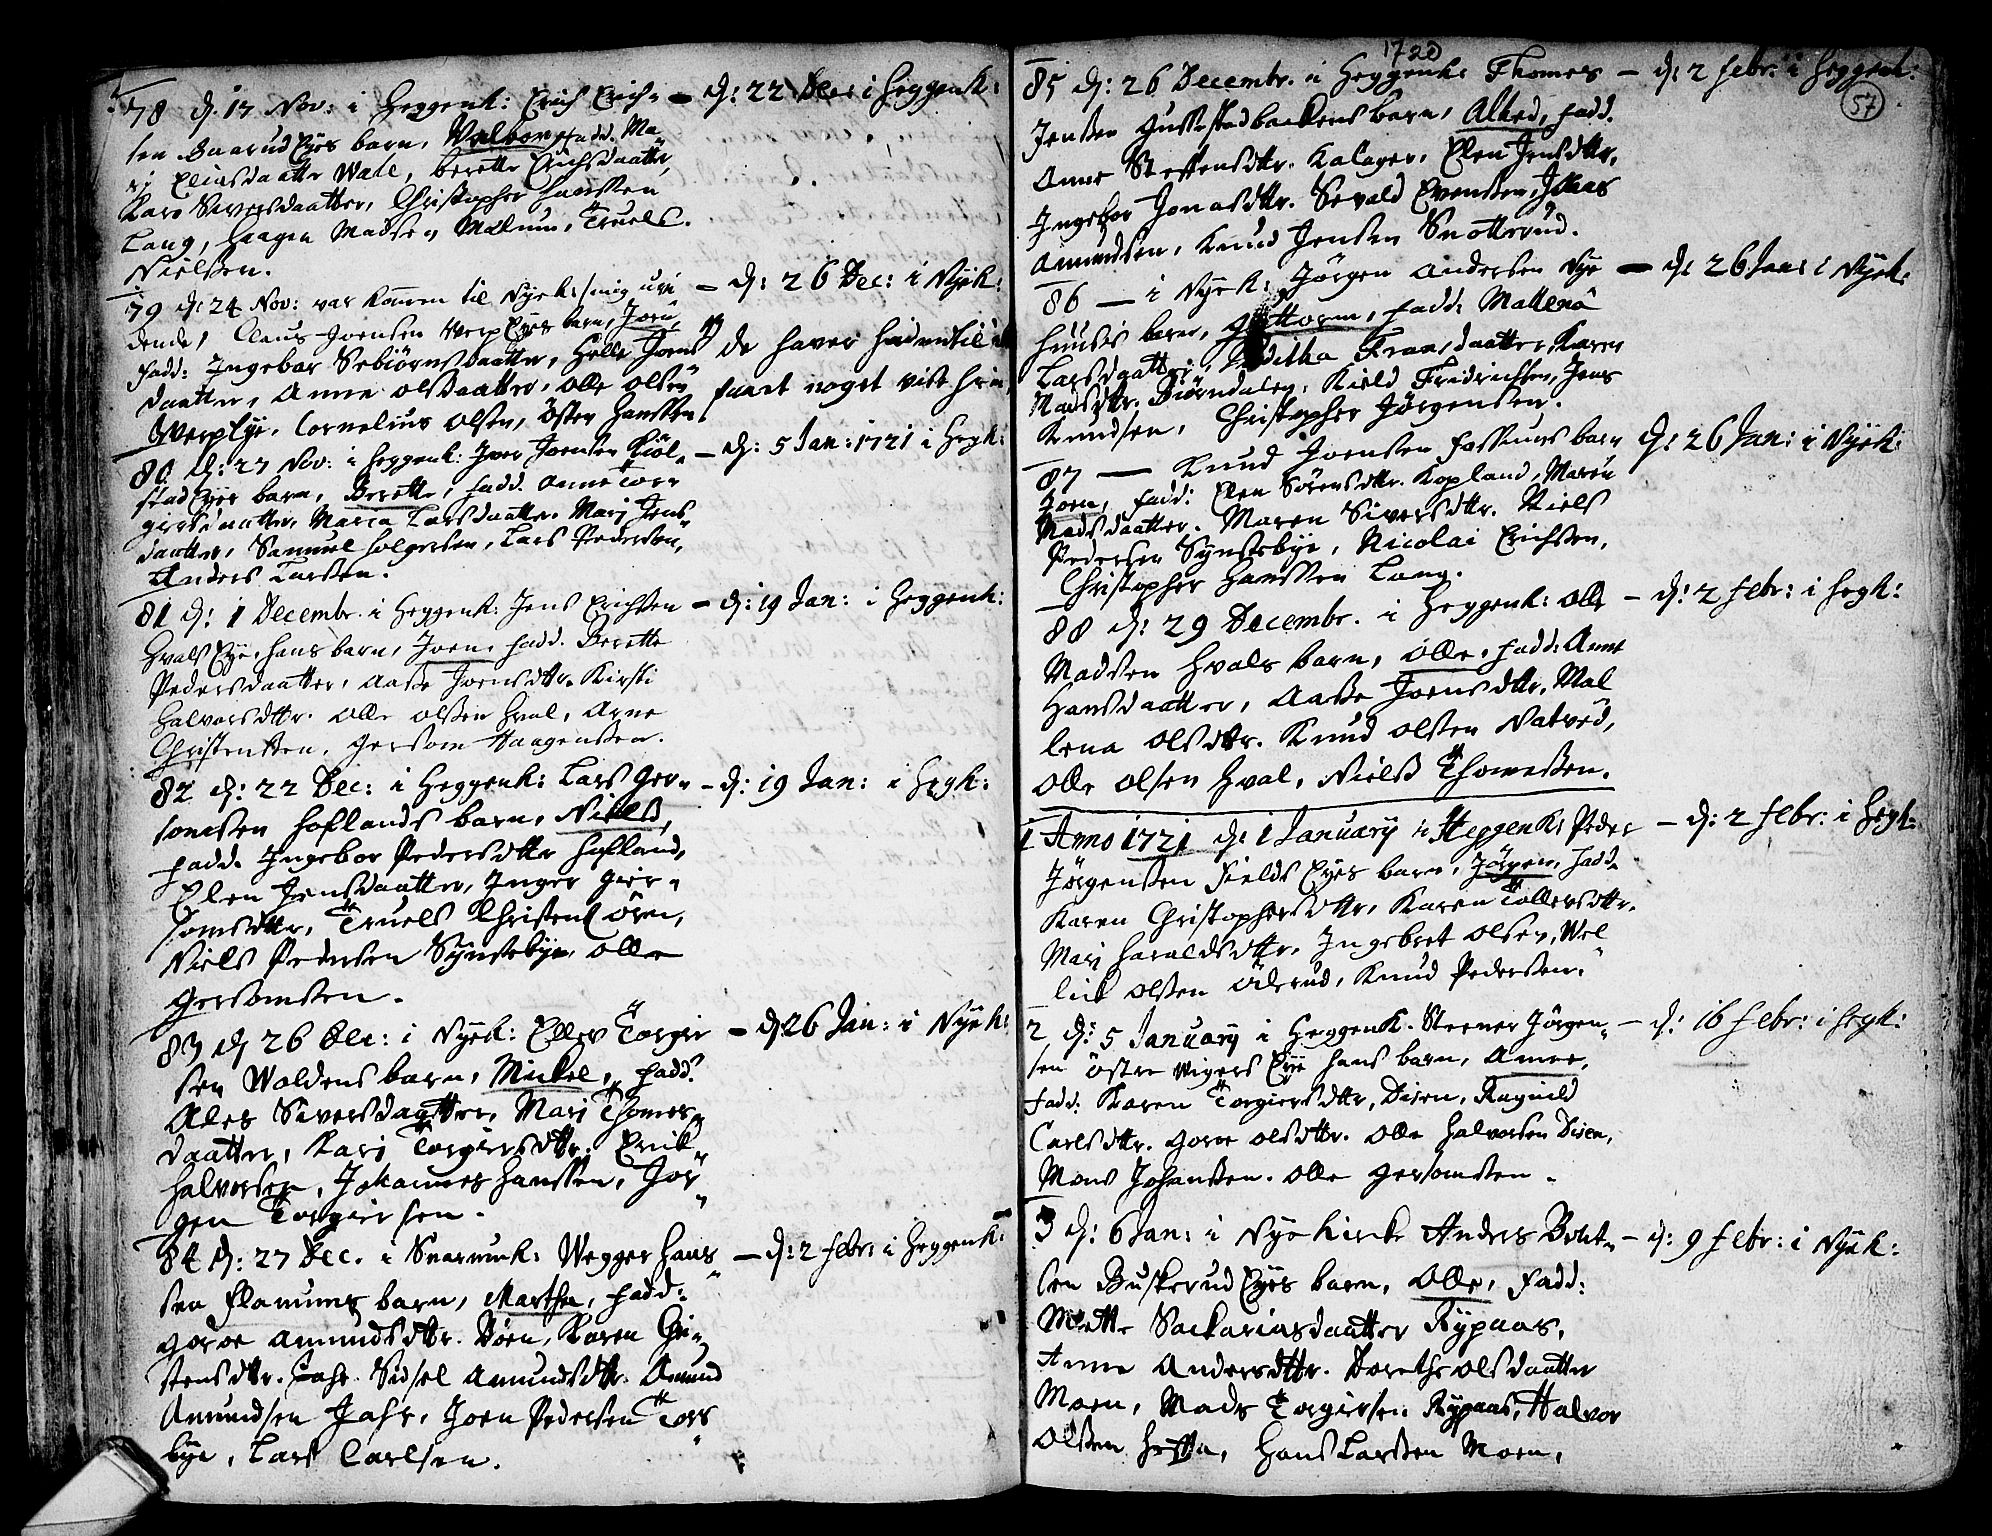 78 d. 17 Nov: i Heggenk: Erich Erich= — d: 22 Dec: i Heggenk:
sen Baarud Eyes barn, Valbor, fadd. Ma
rj Eliasdaatter Wall, Berette Erichsdaatter,
Kari Siversdaatter, Christopher Hanssen
Lang, Haagen Madsen Mælum, Truels
Nielsen.
79 d: 24 Nov: var kommen til Nyek: /mig uvi — d: 26 Dec: i Nyek:
dende/ Claus Joensen Werp Eyes barn, Joen,
fadd: Ingebor Sebiørnsdaatter, Helle Joens de haver hidentil
daatter, Anne Olsdaatter, Olle Olsen faaet noget vist
Werp Eye, Cornelius Olsen, Østen Hanssen
80 d: 27 Nov: i Heggenk: Iver Joensen Kiøl — d: 5 Jan: 1721 i Hegk:
stad Eyes barn, Berette, fadd. Anne Tor=
giersdaatter, Maria Larsdaatter. Marj Jens
daatter, Samuel Holgersen, Lars Pedersen,
Anders Larsen.
81 d: 1 Decembr. i Heggenk: Jens Erichsen — d: 19 Jan: i Heggenk:
Hvals Eye, hans barn, Joen, fadd. Berette
Pedersdaatter, Aasse Joensdttr. Kirsti
Halvorsdttr. Olle Olsen Hval, Arne
Christensen, Gersom Haagensen.
82 d: 22 Dec: i Heggenk: Lars Ger= — d: 19 Jan: i Hegk:
somsen Hoflands barn, Niels,
fadd. Ingebor Pedersdttr Hofland,
Elen Jensdaatter, Inger Gier=
somsdttr, Truels Christensen Ören,
Niels Pedersen Synsteby, Olle
Gersomsen.
83 d 26 Dec: i Nyek: Ellev Torgier — d 26 Jan: i Nyek:
sen Woldens barn, Mickel, fadd:
Ales Siversdaatter, Marj Thomes
daatter, Kari Torgiersdttr. Erik
Halvorsen, Johannes Hanssen, Jör
gen Torgiersen.
84 d: 27 Dec. i Snarumk: Wegger Hans — d: 2 febr: i Heggenk:
sen Flanums barn, Marthe, fadd:
Goroe Amundsdttr. Döen, Karen Chri
stensdttr. Jahr. Sidsel Amundsdttr. Amund
Amundsen Jahr, Joen Pedersen Tors
bye, Lars Carlsen.
1720
57
85 d: 26 Decembr. i Heggenk: Thomes — d: 2 febr: i Heggenk:
Jensen Gustestadbackens barn, Alhed, fadd.
Anne Steffensdttr. Kalager, Elen Jensdttr,
Ingebor Jonasdttr. Sevald Evensen, Jonas
Amundsen, Knud Jensen Snotterud.
86 — i Nyek: Jörgen Andersen Nye — d: 26 Jan: i Nyek:
huusis barn, Guttorm, fadd: Mallena
Larsdaatter, Editha Fransdaatter, Karen
Madsdttr. Biörndalen, Kield Fridrichsen, Jens
Knudsen, Christopher Jörgensen.
87 — Knud Joensen Fossums barn d: 26 Jan: i Nyek:
Joen, fadd: Elen Sörensdttr. Kopland, Maren
Madsdaatter. Maren Siversdttr. Niels
Pedersen Synstebye, Nicolai Erichsen,
Christopher Hanssen Lang.
88 d: 29 Decembr. i Heggenk: Olle — d: 2 febr: i Hegk:
Madsen Hvals barn, Olle, fadd: Anne
Hansdaatter, Aasse Joensdttr, Mal
lena Olsdttr. Knud Olsen Natved,
Olle Olsen Hval, Niels Thomessen.
1 Anno 1721 d: 1 January i Heggenk: Peder — d: 2 febr: i Hegk:
Jörgensen Fields Eyes barn, Jörgen, fadd.
Karen Christophersdttr, Karen Tollersdttr.
Marj Haraldsdttr, Ingebret Olsen, Wel
lick Olsen Öderud, Knud Pedersen.
2 d: 5 January i Heggenk. Steener Jörgen= — d: 16 febr: i Hegk:
sen Östre Vigers Eye hans barn, Anne,
fadd: Karen Torgiersdttr, Disen, Ragnild
Carlsdttr. Goroe Olsdttr. Olle Halvorsen Disen,
Mons Johansen. Olle Gersomsen.
3 d: 6 Jan: i Nye kircke Anders Bent= — d: 9 febr: i Nyek:
sen Buskerud Eyes barn, Olle, fadd:
Mette Sackariasdaatter Rypaas,
Anne Andersdttr. Dorethe Olsdaatter
Moen, Mads Torgiersen Rypaas, Halvor
Olsen Hæffta, Hans Larssen Moen,